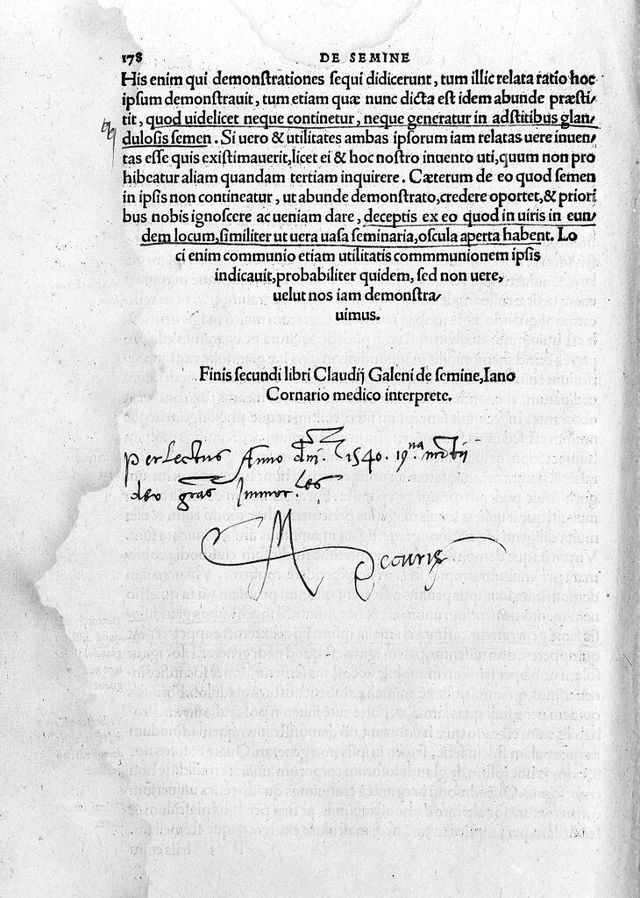 178 DE SEMINE
His enim qui demonstrationes sequi didicerunt, tum illic relata ratio hoc
ipsum demonstrauit, tum etiam quæ nunc dicta est idem abunde præsti/
tit, quod uidelicet neque continetur, neque generatur in adstitibus glan/
dulosis semen. Si uero & utilitates ambas ipsorum iam relatas uere inuen/
tas esse quis existimauerit, licet ei & hoc nostro inuento uti, quum non pro
hibeatur aliam quandam tertiam inquirere. Cæterum de eo quod semen
in ipsis non contineatur, ut abunde demonstrato, credere oportet, & priori
bus nobis ignoscere ac ueniam dare, deceptis ex eo quod in uiris in eun/
dem locum, similiter ut uera uasa seminaria, oscula aperta habent. Lo
ci enim communio etiam utilitatis commmunionem ipsis
indicauit, probabiliter quidem, sed non uere,
uelut nos iam demonstra/
uimus.
Finis secundi libri Claudij Galeni de semine, Iano
Cornario medico interprete.
perlectus Anno dni. 1540. 19.na mrtij
deo gras Immor.les
M Securis